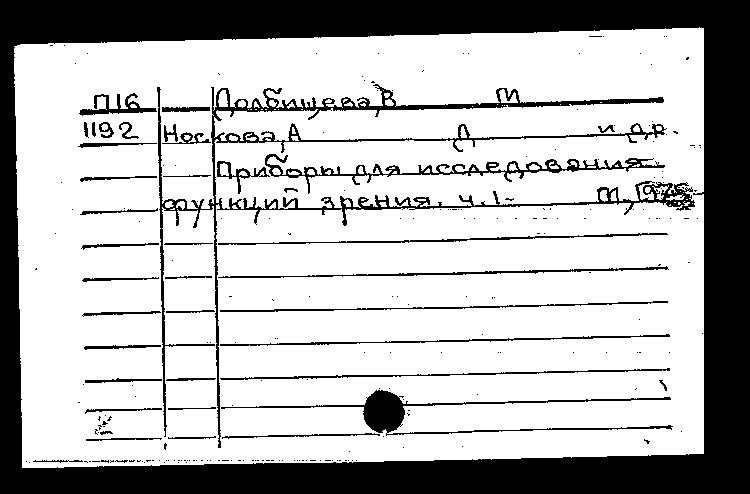 П16 Долбищева, В М
1192 Носкова, А Д и др.
Приборы для исследования
функций зрения. ч.1- М.,